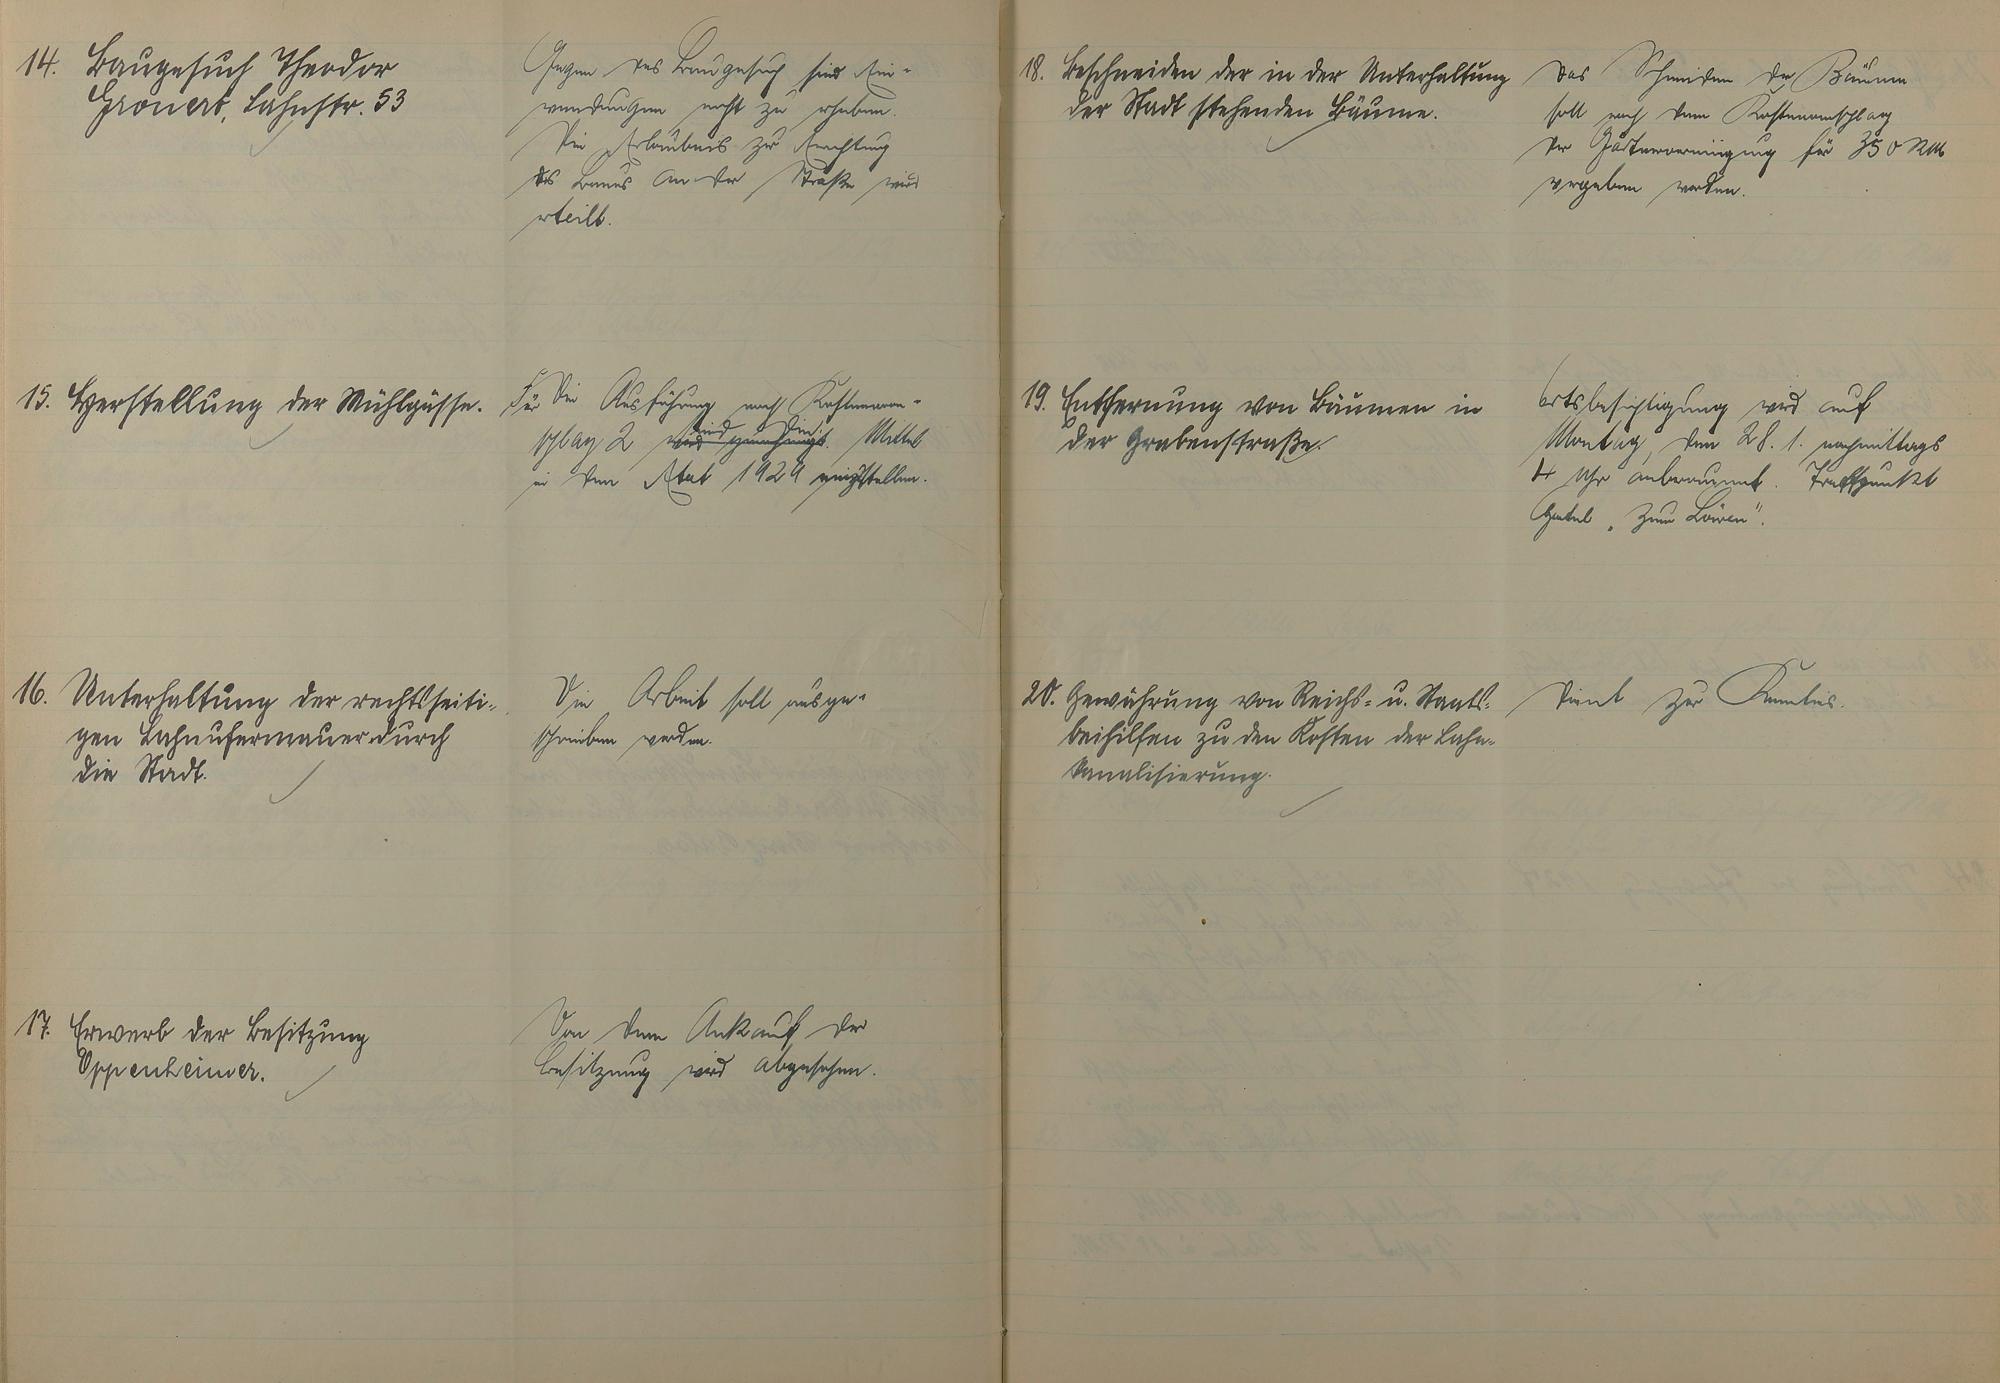 14. Baugesuch Theodor
Gronert, Lahnstr. 53
Gegen das Baugesuch sind Ein-
wendungen nicht zu erheben.
Die Erlaubnis zur Errichtung
des Baues an der Straße wird
erteilt.
15. Herstellung der Mühlgasse.
Für die Ausführung nach Kostenan-
schlag 2 sind die Mittel
in den Etat 1929 einzustellen.
16. Unterhaltung der rechtsseiti-
gen Lahnufermauer durch
die Stadt.
Die Arbeit soll ausge-
schrieben werden.
17. Erwerb der Besitzung
Oppenheimer.
Von dem Ankauf der
Besitzung wird abgesehen.
18. Beschneiden der in der Unterhaltung
der Stadt stehenden Bäume.
Das Schneiden der Bäume
soll nach dem Kostenanschlag
der Gärtnervereinigung für 350 RM
vergeben werden.
19. Entfernung von Bäumen in
der Grabenstraße.
Ortsbesichtigung wird auf
Montag, den 28. 1. nachmittags
4 Uhr anberaumt. Treffpunkt
Hotel „Zum Löwen".
20. Gewährung von Reichs- u. Staats-
beihilfen zu den Kosten der Lahn-
kanalisierung.
Dient zur Kenntnis.